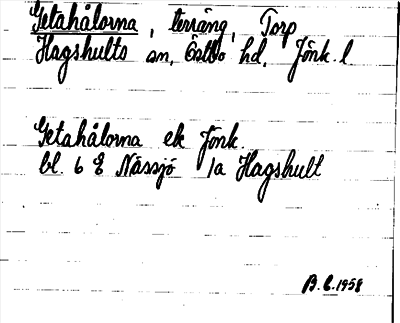 Getahålorna, terräng, Torp
Hagshults sn, Östbo hd, Jönk. l
Getahålorna ek Jönk.
bl. 6 E Nässjö 1a Hagshult
B.E. 1958